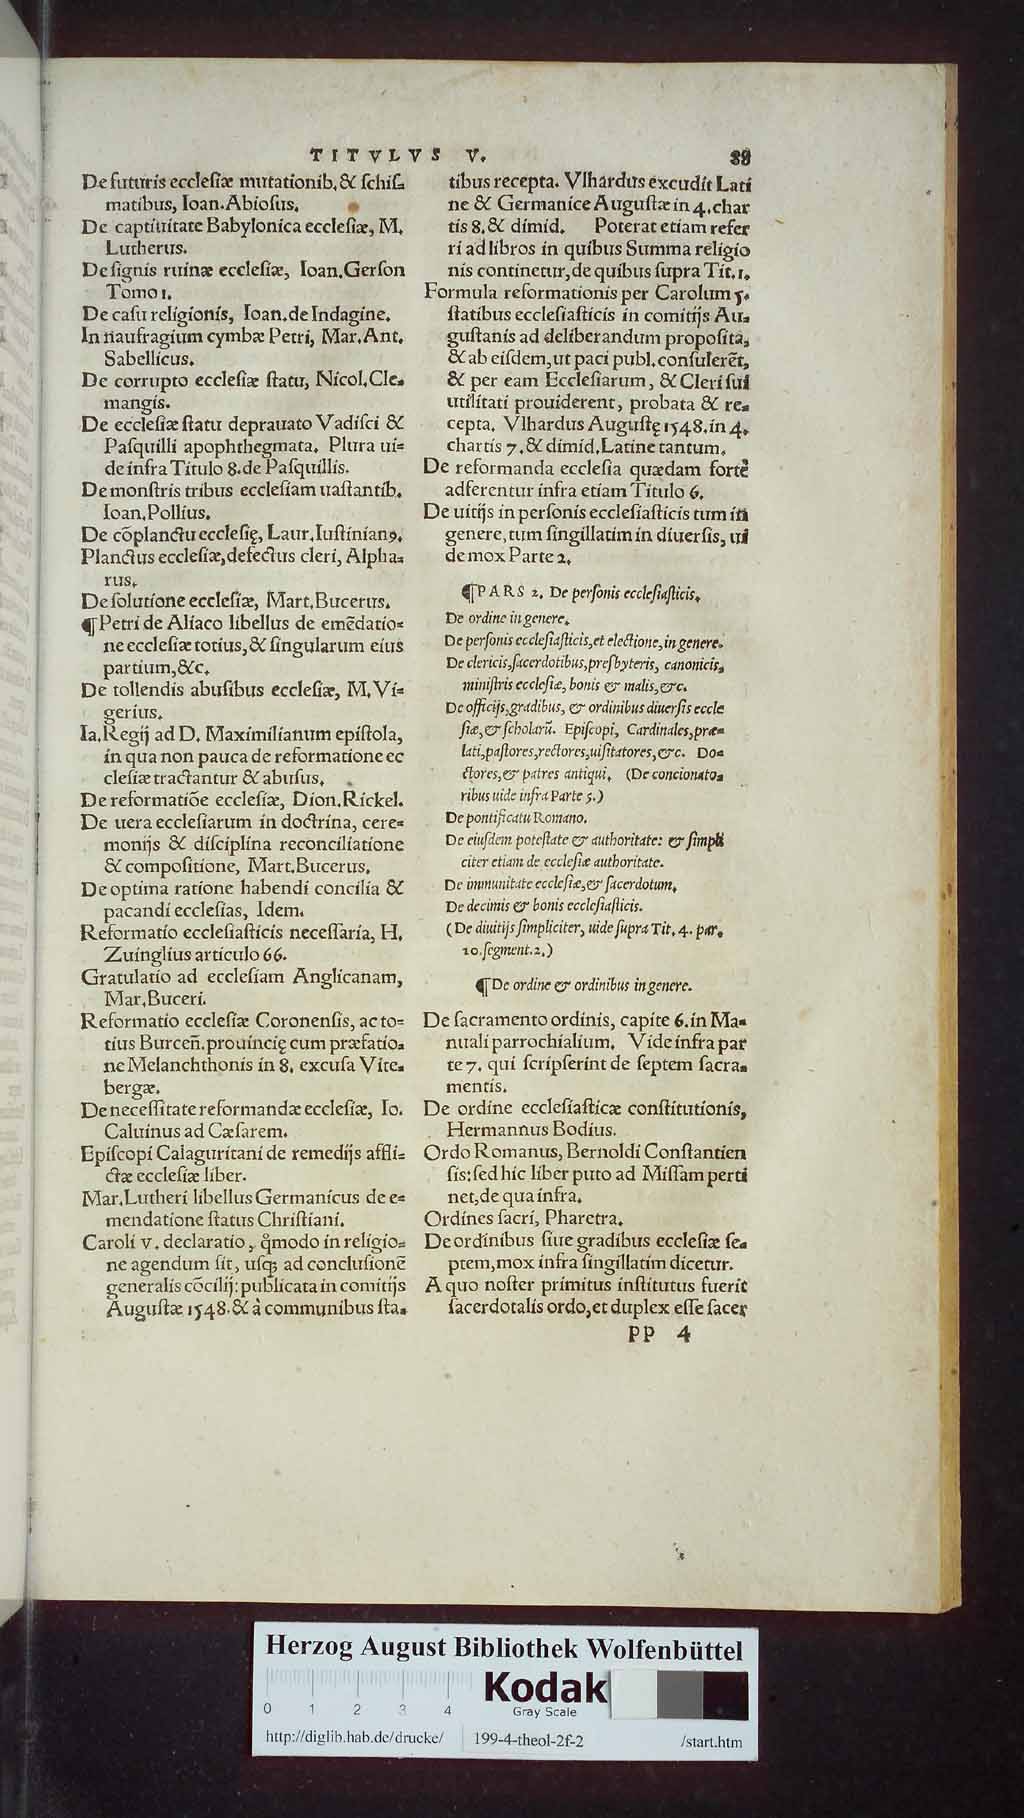 TITVLVS V. 88
De futuris ecclesiæ mutationib. & schis-
matibus, Ioan. Abiosus.
De captiuitate Babylonica ecclesiæ, M.
Lutherus.
De signis ruinæ ecclesiæ, Ioan. Gerson
Tomo 1.
De casu religionis, Ioan. de Indagine.
In naufragium cymbæ Petri, Mar. Ant.
Sabellicus.
De corrupto ecclesiæ statu, Nicol. Cle-
mangis.
De ecclesiæ statu deprauato Vadisci &
Pasquilli apophthegmata. Plura ui-
de infra Titulo 8. de Pasquillis.
De monstris tribus ecclesiam uastantib.
Ioan. Pollius.
De cōplanctu ecclesię, Laur. Iustinianꝰ.
Planctus ecclesiæ, defectus cleri, Alpha-
rus.
De solutione ecclesiæ, Mart. Bucerus.
¶ Petri de Aliaco libellus de emēdatio-
ne ecclesiæ totius, & singularum eius
partium, &c.
De tollendis abusibus ecclesiæ, M. Vi-
gerius.
Ia. Regij ad D. Maximilianum epistola,
in qua non pauca de reformatione ec
clesiæ tractantur & abusus.
De reformatiōe ecclesiæ, Dion. Rickel.
De uera ecclesiarum in doctrina, cere-
monijs & disciplina reconciliatione
& compositione, Mart. Bucerus.
De optima ratione habendi concilia &
pacandi ecclesias, Idem.
Reformatio ecclesiasticis necessaria, H.
Zuinglius articulo 66.
Gratulatio ad ecclesiam Anglicanam,
Mar. Buceri.
Reformatio ecclesiæ Coronensis, ac to-
tius Burceñ. prouincię cum præfatio-
ne Melanchthonis in 8. excusa Vite-
bergæ.
De necessitate reformandæ ecclesiæ, Io.
Caluinus ad Cæsarem.
Episcopi Calaguritani de remedijs affli-
ctæ ecclesiæ liber.
Mar. Lutheri libellus Germanicus de e-
mendatione status Christiani.
Caroli v. declaratio, q̊modo in religio-
ne agendum sit, usq; ad conclusionē
generalis cōcilij: publicata in comitijs
Augustæ 1548. & à communibus sta-
tibus recepta. Vlhardus excudit Lati
ne & Germanice Augustæ in 4. char
tis 8. & dimid. Poterat etiam refer
ri ad libros in quibus Summa religio
nis continetur, de quibus supra Tit. 1.
Formula reformationis per Carolum 5.
statibus ecclesiasticis in comitijs Au-
gustanis ad deliberandum proposita,
& ab eisdem, ut paci publ. consulerēt,
& per eam Ecclesiarum, & Cleri sui
utilitati prouiderent, probata & re-
cepta. Vlhardus Augustę 1548. in 4.
chartis 7. & dimid. Latine tantum.
De reformanda ecclesia quædam forte
adferentur infra etiam Titulo 6.
De uitijs in personis ecclesiasticis tum in
genere, tum singillatim in diuersis, ui
de mox Parte 2.
¶ PARS 2. De personis ecclesiasticis.
De ordine in genere.
De personis ecclesiasticis, et electione, in genere.
De clericis, sacerdotibus, presbyteris, canonicis,
ministris ecclesiæ, bonis & malis, &c.
De officijs, gradibus, & ordinibus diuersis eccle
siæ, & scholarū. Episcopi, Cardinales, præ-
lati, pastores, rectores, uisitatores, &c. Do-
ctores, & patres antiqui. (De concionato-
ribus uide infra Parte 5.)
De pontificatu Romano.
De eiusdem potestate & authoritate: & simpli
citer etiam de ecclesiæ authoritate.
De immunitate ecclesiæ, & sacerdotum.
De decimis & bonis ecclesiasticis.
(De diuitijs simpliciter, uide supra Tit. 4. par.
20. segment. 2.)
¶ De ordine & ordinibus in genere.
De sacramento ordinis, capite 6. in Ma-
nuali parrochialium. Vide infra par
te 7. qui scripserint de septem sacra-
mentis.
De ordine ecclesiasticæ constitutionis,
Hermannus Bodius.
Ordo Romanus, Bernoldi Constantien
sis: sed hic liber puto ad Missam perti
net, de qua infra.
Ordines sacri, Pharetra.
De ordinibus siue gradibus ecclesiæ se-
ptem, mox infra singillatim dicetur.
A quo noster primitus institutus fuerit
sacerdotalis ordo, et duplex esse sacer
PP 4
Herzog August Bibliothek Wolfenbüttel
0 1 2 3 4
Kodak
Gray Scale
http://diglib.hab.de/drucke/ 199-4-theol-2f-2 /start.htm